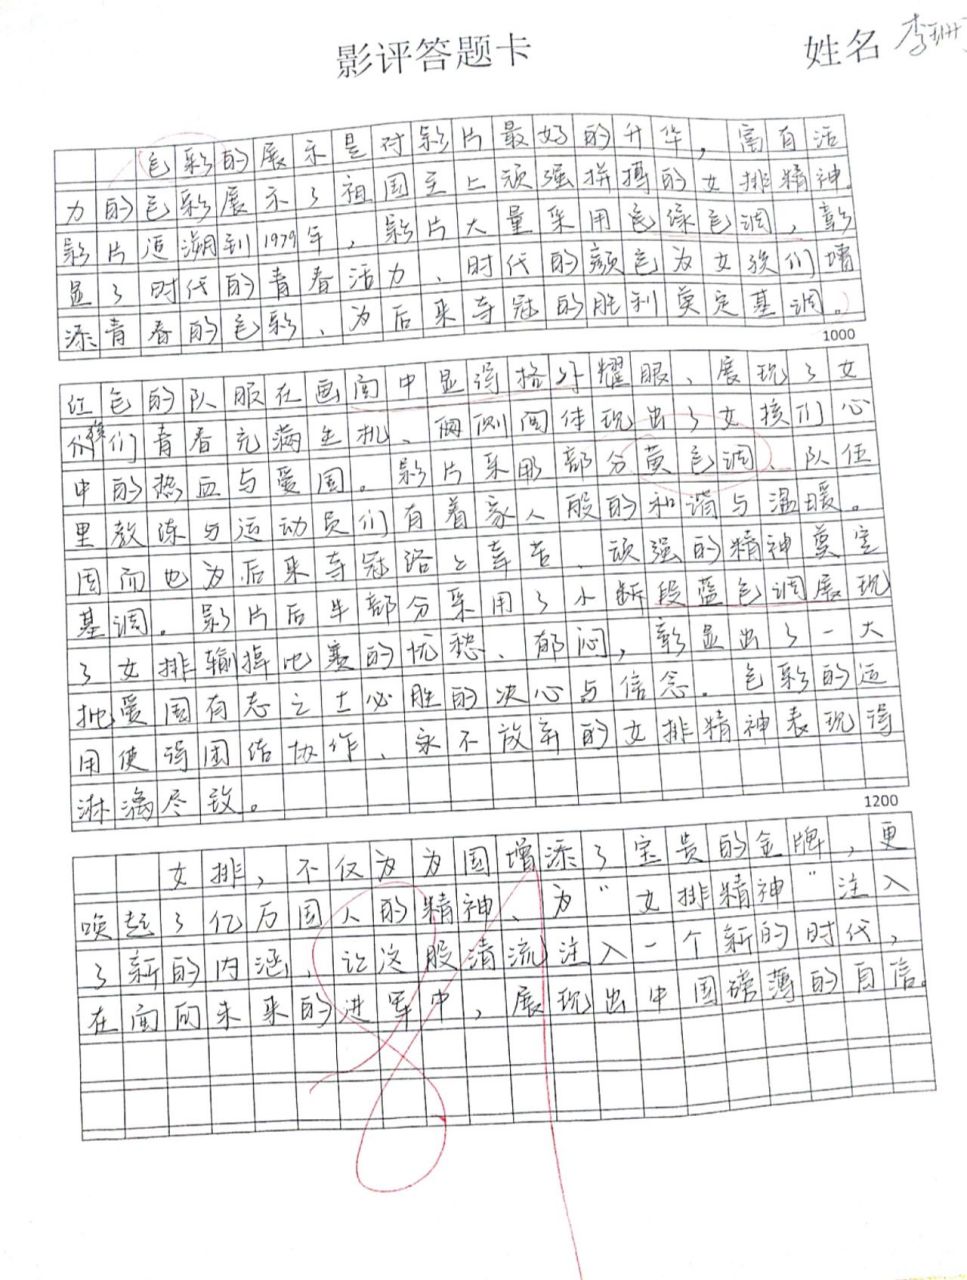 影评答题卡
姓名 李珊
色彩的展示是对影片最好的升华，富有活
力的色彩展示了祖国至上顽强拼搏的女排精神。
影片追溯到1979年，影片大量采用色绿色调，彰
显了时代的青春活力、时代的颜色为女孩们增
添青春的色彩、为后来夺冠的胜利奠定基调。
1000
红色的队服在画面中显得格外耀眼、展现了女
孩们青春充满生机、侧面体现出了女孩们心
中的热血与爱国。影片采用部分黄色调、队伍
里教练与运动员们有着家人般的和谐与温暖。
因而也为后来夺冠路上辛苦、顽强的精神奠定
基调。影片后半部分采用了小断段蓝色调展现
了女排输掉比赛的忧愁、郁闷，彰显出了一大
批爱国有志之士必胜的决心与信念。色彩的运
用使得团结协作、永不放弃的女排精神表现得
淋漓尽致。
1200
女排，不仅为为国增添了宝贵的金牌，更
唤起了亿万国人的精神、为“女排精神”注入
了新的内涵、让这股清流注入一个新的时代，
在面向未来的进军中，展现出中国磅薄的自信。
81